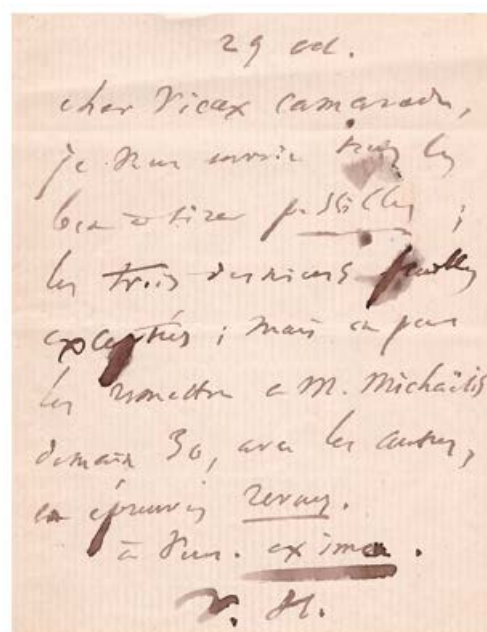 29 oct.
cher vieux camarade,
je vous envoie tous les
bon à tirer possibles ;
les trois derniers feuilles
exceptés ; mais on peut
les remettre à M. Michaëlis
demain 30, avec les autres,
en épreuves revues.
à vous. ex imo.
V. H.